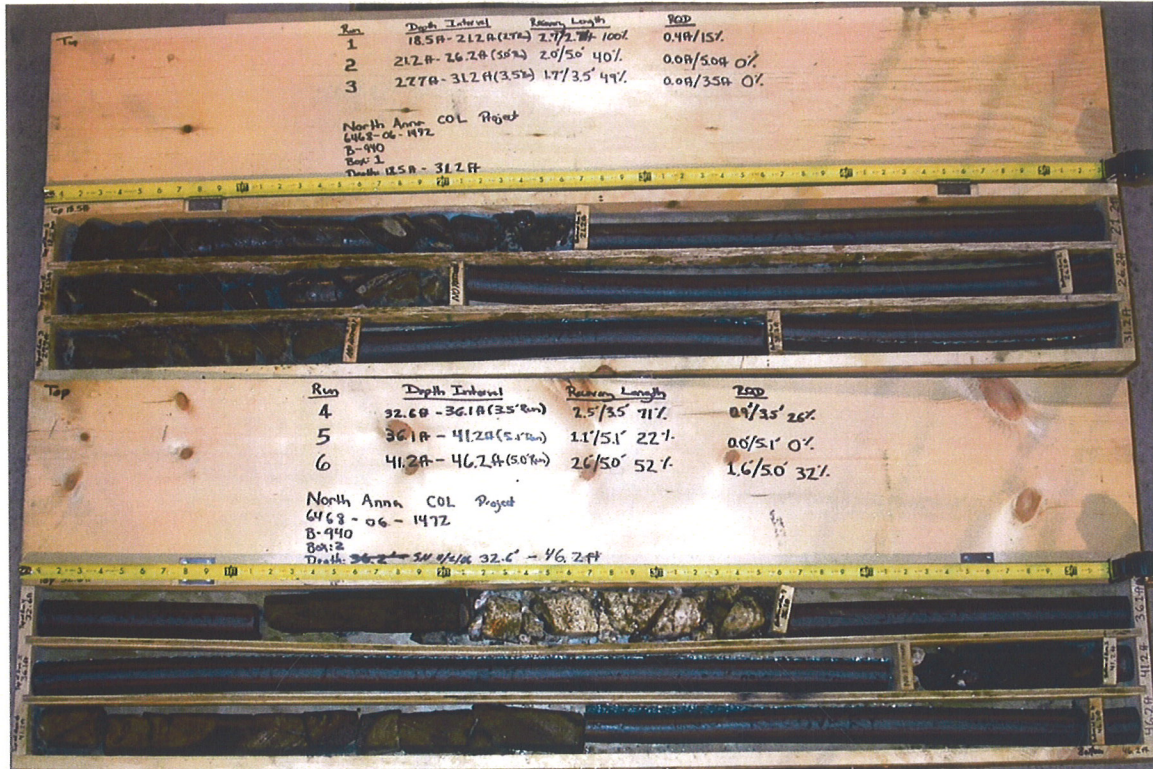 Top
Run Depth Interval Recovery Length RQD
1 18.5ft - 21.2ft (2.7Run) 2.7/2.7ft 100% 0.4ft/15%
2 21.2ft - 26.2ft (5.0Run) 2.0'/5.0' 40% 0.0ft/5.0ft 0%
3 27.7ft - 31.2ft (3.5Run) 1.7'/3.5' 49% 0.0ft/3.5ft 0%
North Anna COL Project
6468-06-1492
B-940
Box: 1
Depth: 18.5ft - 31.2ft
Top 18.5ft
21.2ft
26.2ft
NO
31.2ft
Top
Run Depth Interval Recovery Length RQD
4 32.6ft - 36.1ft (3.5'Run) 2.5'/3.5' 71% 0.9'/3.5' 26%
5 36.1ft - 41.2ft (5.1'Run) 1.1'/5.1' 22% 0.0'/5.1' 0%
6 41.2ft - 46.2ft (5.0'Run) 2.6'/5.0' 52% 1.6'/5.0' 32%
North Anna COL Project
6468-06-1472
B-940
Box: 2
Depth: 32.6' - 46.2ft
36.1ft
41.2ft
46.2ft
Bottom
46.2ft